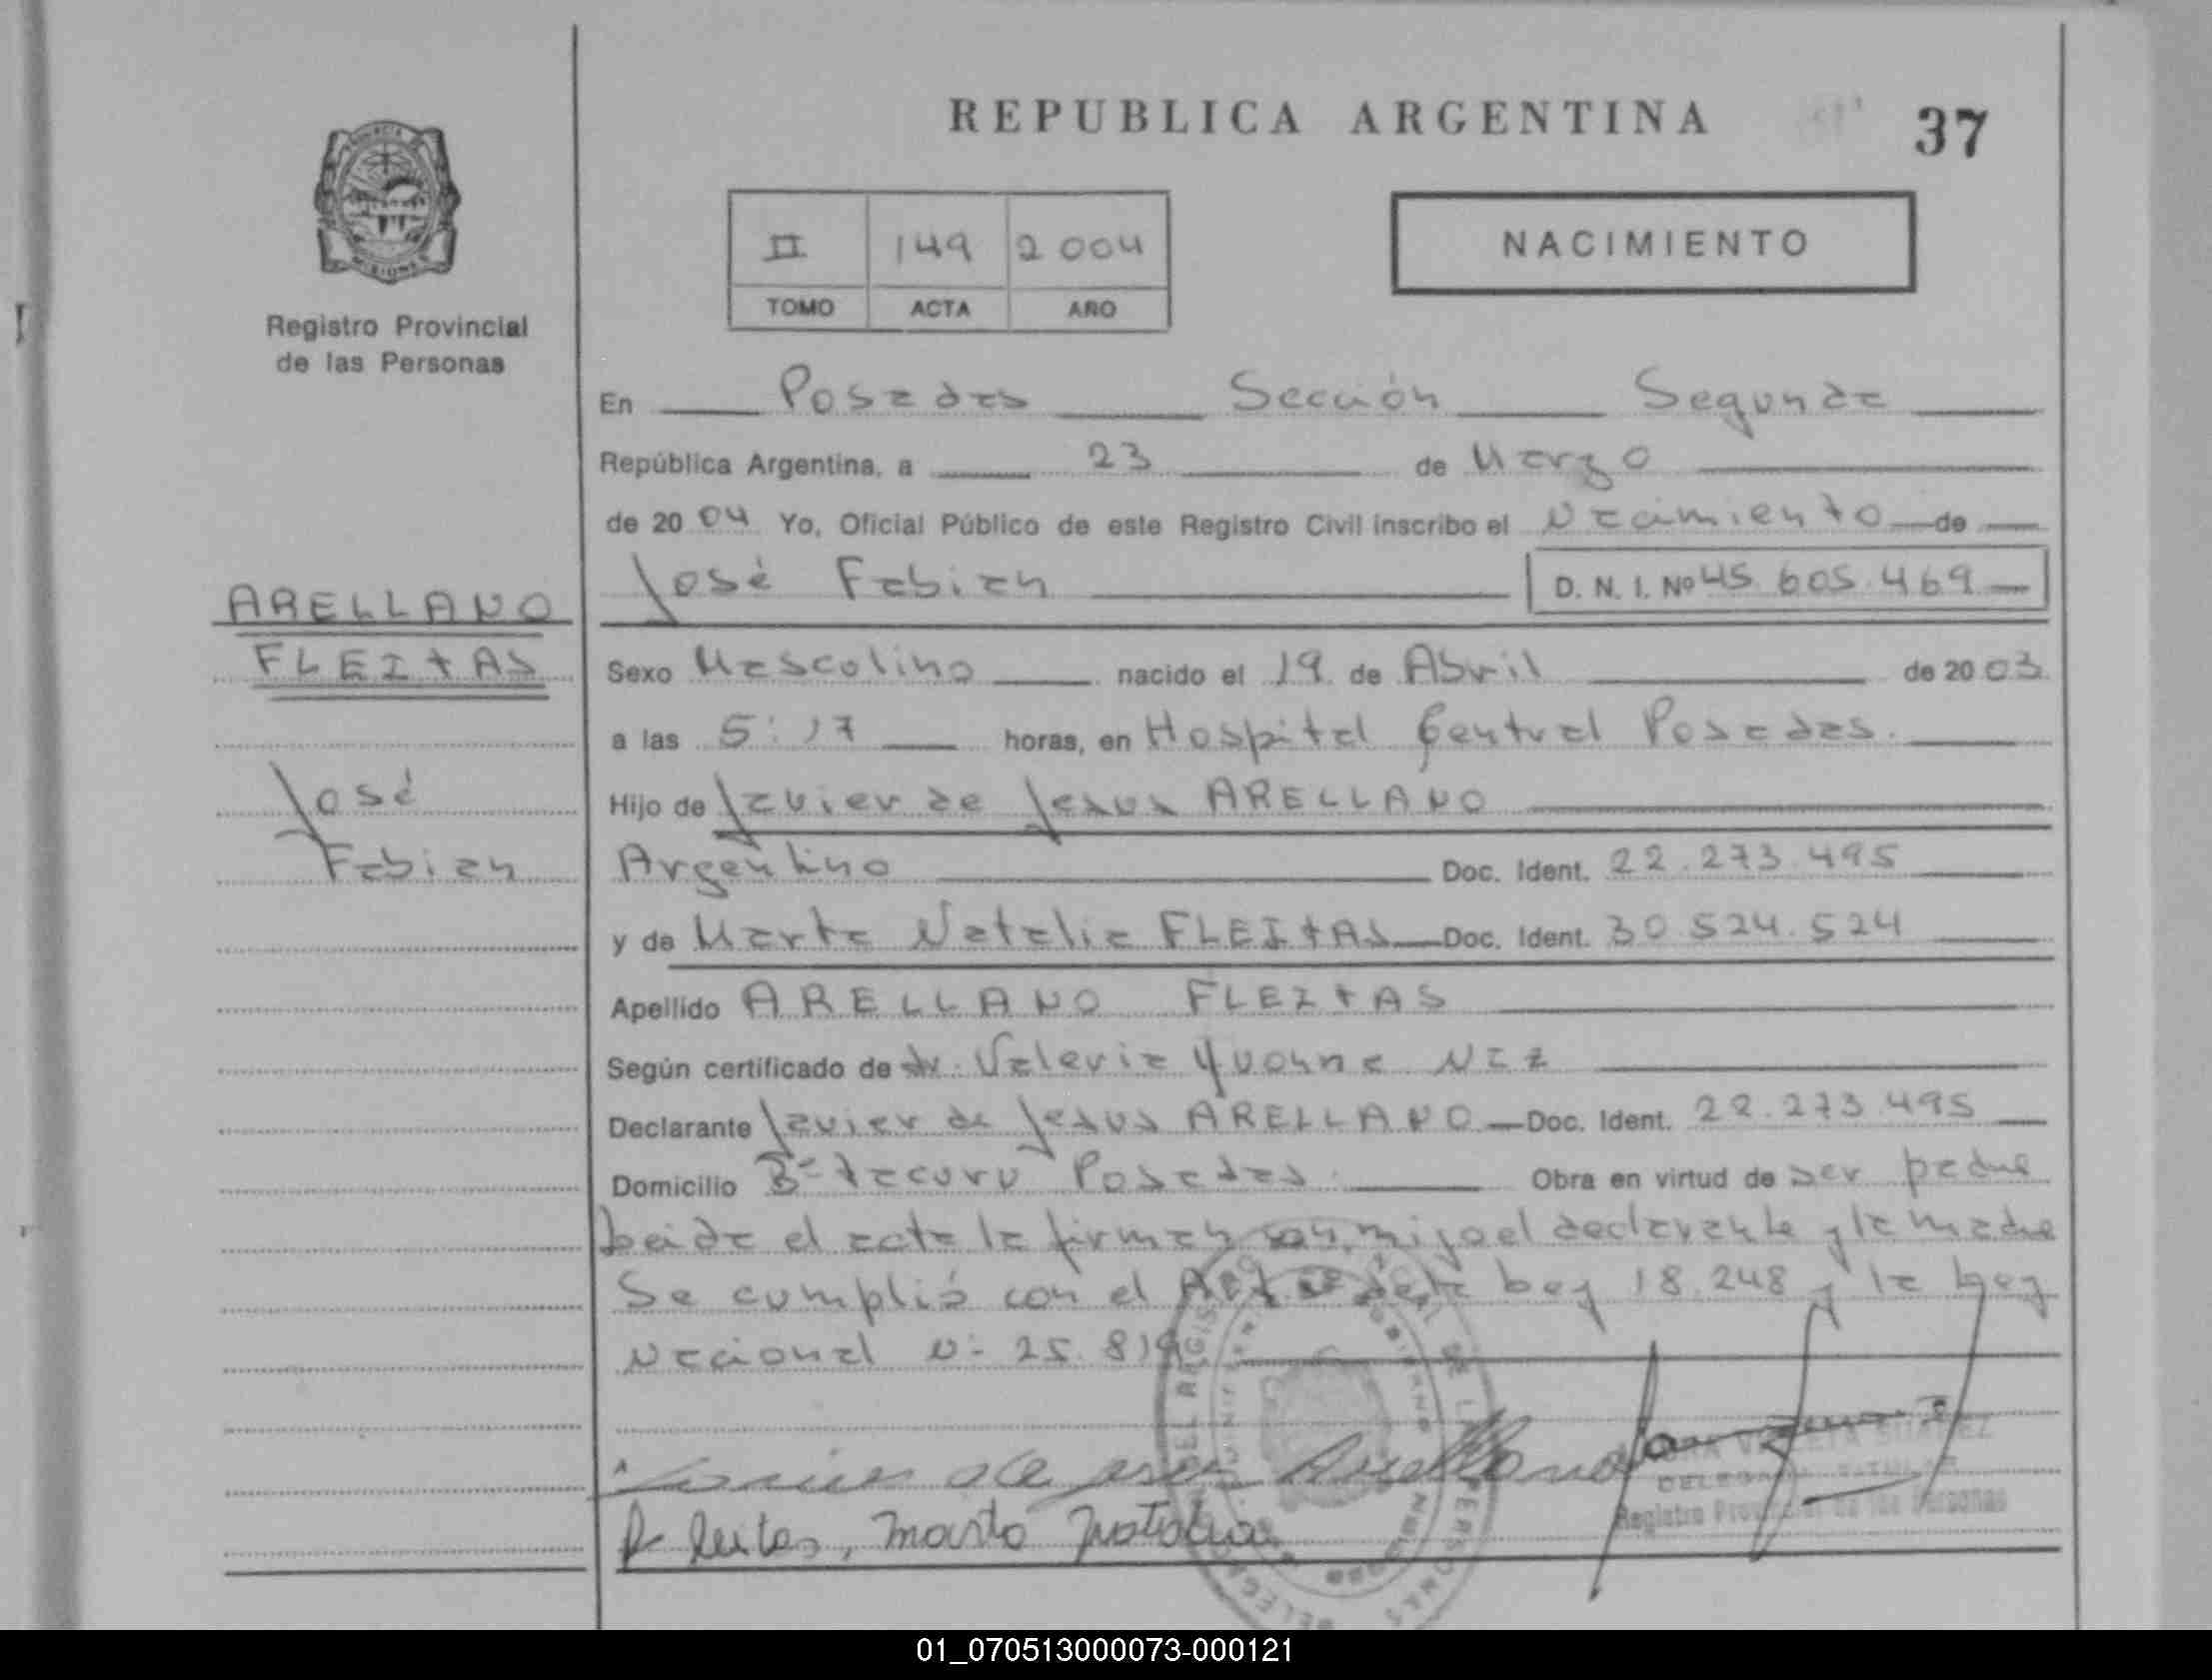 REPUBLICA ARGENTINA
37
II 149 2004
TOMO ACTA AÑO
NACIMIENTO
Registro Provincial
de las Personas
En Posadas Sección Segunda
República Argentina, a 23 de Marzo
de 2004 Yo, Oficial Público de este Registro Civil inscribo el Nacimiento de
José Fabian D. N. I. Nº 45.605.469
ARELLANO
FLEITAS
José
Fabian
Sexo Masculino nacido el 19 de Abril de 2003
a las 5:17 horas, en Hospital Central Posadas.
Hijo de Javier de Jesus ARELLANO
Argentino Doc. Ident. 22.273.495
y de Marta Natalia FLEITAS Doc. Ident. 30.524.524
Apellido ARELLANO FLEITAS
Según certificado de dr. Valeria Yvonne
Declarante Javier de Jesus ARELLANO Doc. Ident. 22.273.495
Domicilio Bº Yacuru Posadas. Obra en virtud de ser padre
Leida el acta la firman conmigo el declarante y la madre
Se cumplió con el Art Ley 18.248 y la Ley
Nacional Nº 25.819
Javier de Jesus Arellano
Fleitas, Marta Natalia
Registro Provincial de las Personas
01_070513000073-000121